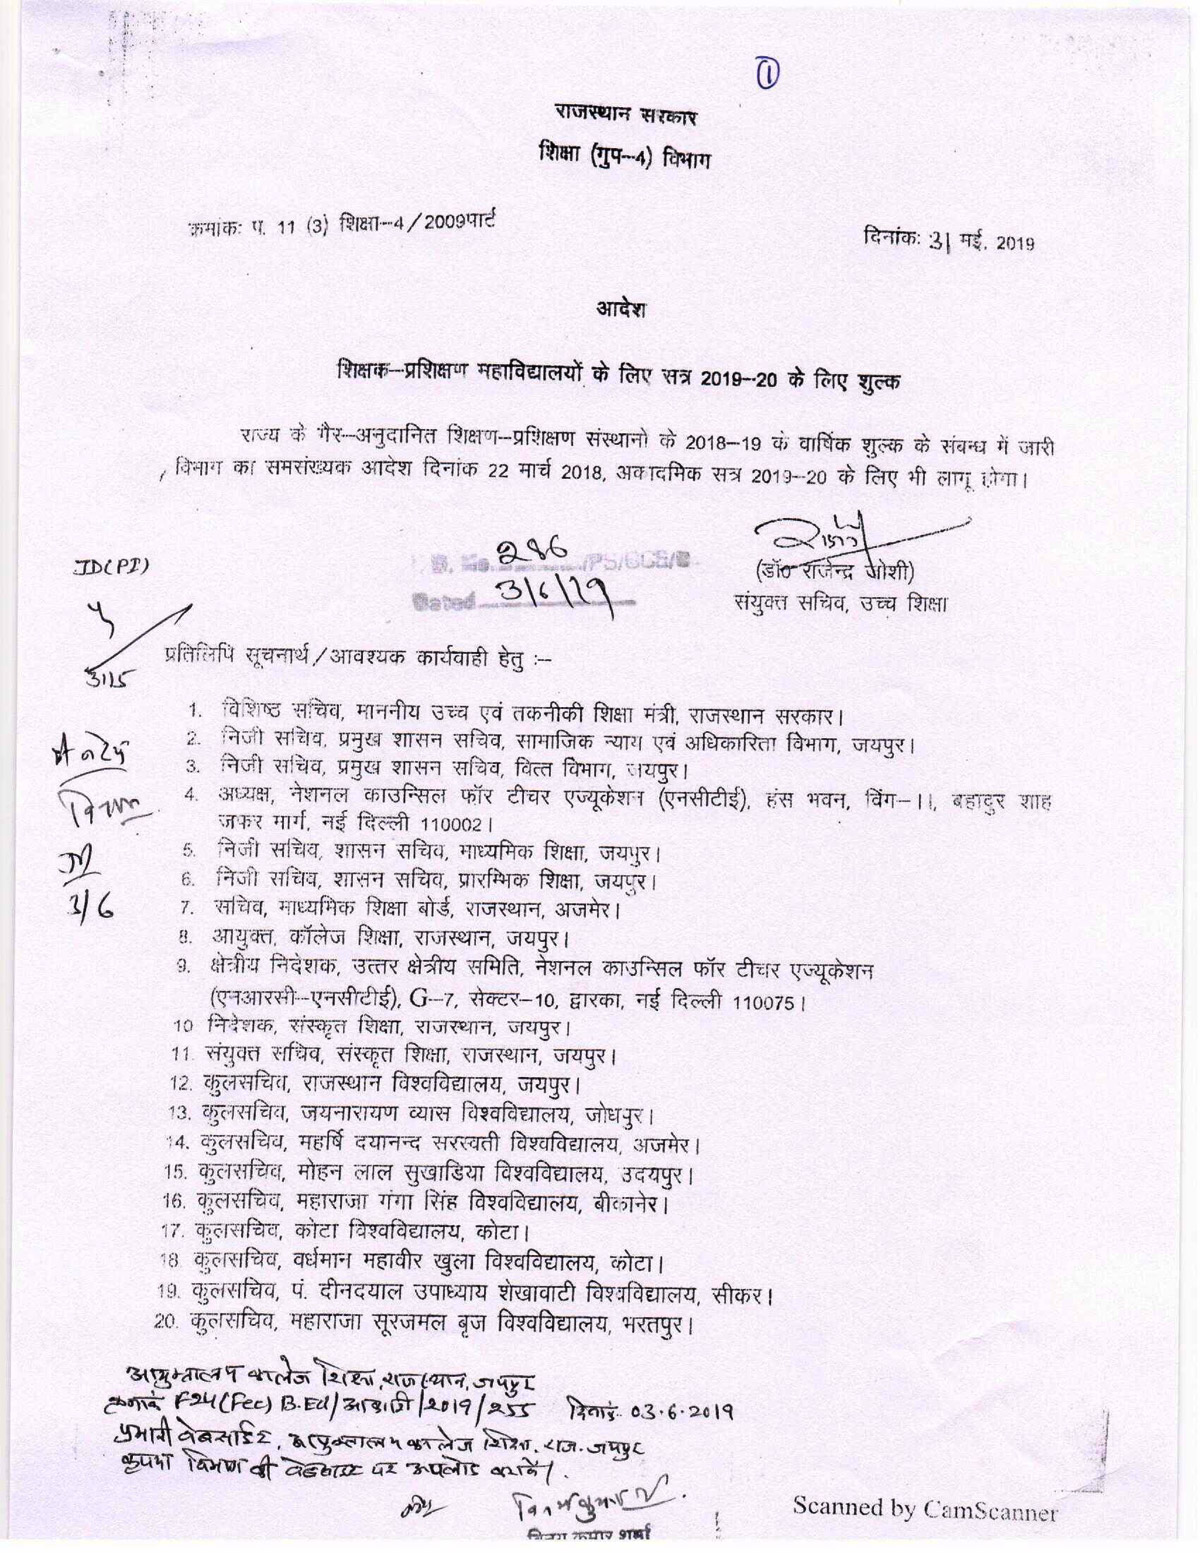 1
राजस्थान सरकार
शिक्षा (ग्रुप-4) विभाग
क्रमांकः प. 11 (3) शिक्षा-4/2009पार्ट
दिनांकः 31 मई, 2019
आदेश
शिक्षक-प्रशिक्षण महाविद्यालयों के लिए सत्र 2019-20 के लिए शुल्क
राज्य के गैर-अनुदानित शिक्षण-प्रशिक्षण संस्थानो के 2018-19 के वार्षिक शुल्क के संबन्ध में जारी
विभाग का समसंख्यक आदेश दिनांक 22 मार्च 2018, अकादमिक सत्र 2019-20 के लिए भी लागू होगा।
286
Dated 3/6/19
(डॉ0 राजेन्द्र जोशी)
संयुक्त सचिव, उच्च शिक्षा
JD(PI)
31/5
प्रतिलिपि सूचनार्थ/आवश्यक कार्यवाही हेतु :-
1. विशिष्ठ सचिव, माननीय उच्च एवं तकनीकी शिक्षा मंत्री, राजस्थान सरकार।
2. निजी सचिव, प्रमुख शासन सचिव, सामाजिक न्याय एवं अधिकारिता विभाग, जयपुर।
3. निजी सचिव, प्रमुख शासन सचिव, वित्त विभाग, जयपुर।
4. अध्यक्ष, नेशनल काउन्सिल फॉर टीचर एज्यूकेशन (एनसीटीई), हंस भवन, विंग-।।, बहादुर शाह
जफर मार्ग, नई दिल्ली 110002।
5. निजी सचिव, शासन सचिव, माध्यमिक शिक्षा, जयपुर।
6. निजी सचिव, शासन सचिव, प्रारम्भिक शिक्षा, जयपुर।
7. सचिव, माध्यमिक शिक्षा बोर्ड, राजस्थान, अजमेर।
3/6
8. आयुक्त, कॉलेज शिक्षा, राजस्थान, जयपुर।
9. क्षेत्रीय निदेशक, उत्तर क्षेत्रीय समिति, नेशनल काउन्सिल फॉर टीचर एज्यूकेशन
(एनआरसी-एनसीटीई), G-7, सेक्टर-10, द्वारका, नई दिल्ली 110075।
10 निदेशक, संस्कृत शिक्षा, राजस्थान, जयपुर।
11. संयुक्त सचिव, संस्कृत शिक्षा, राजस्थान, जयपुर।
12. कुलसचिव, राजस्थान विश्वविद्यालय, जयपुर।
13. कुलसचिव, जयनारायण व्यास विश्वविद्यालय, जोधपुर।
14. कुलसचिव, महर्षि दयानन्द सरस्वती विश्वविद्यालय, अजमेर।
15. कुलसचिव, मोहन लाल सुखाडिया विश्वविद्यालय, उदयपुर।
16. कुलसचिव, महाराजा गंगा सिंह विश्वविद्यालय, बीकानेर।
17. कुलसचिव, कोटा विश्वविद्यालय, कोटा।
18. कुलसचिव, वर्धमान महावीर खुला विश्वविद्यालय, कोटा।
19. कुलसचिव, पं. दीनदयाल उपाध्याय शेखावाटी विश्वविद्यालय, सीकर।
20. कुलसचिव, महाराजा सूरजमल बृज विश्वविद्यालय, भरतपुर।
आयुक्तालय कालेज शिक्षा, राजस्थान, जयपुर
क्रमांक F24(Fee) B.Ed/आकाशि/2019/255 दिनांक 03.6.2019
प्रभारी वेबसाईट, आयुक्तालय कालेज शिक्षा, राज. जयपुर
कृपया विभाग की वेबसाइट पर अपलोड करावें।
विजय कुमार शर्मा
Scanned by CamScanner